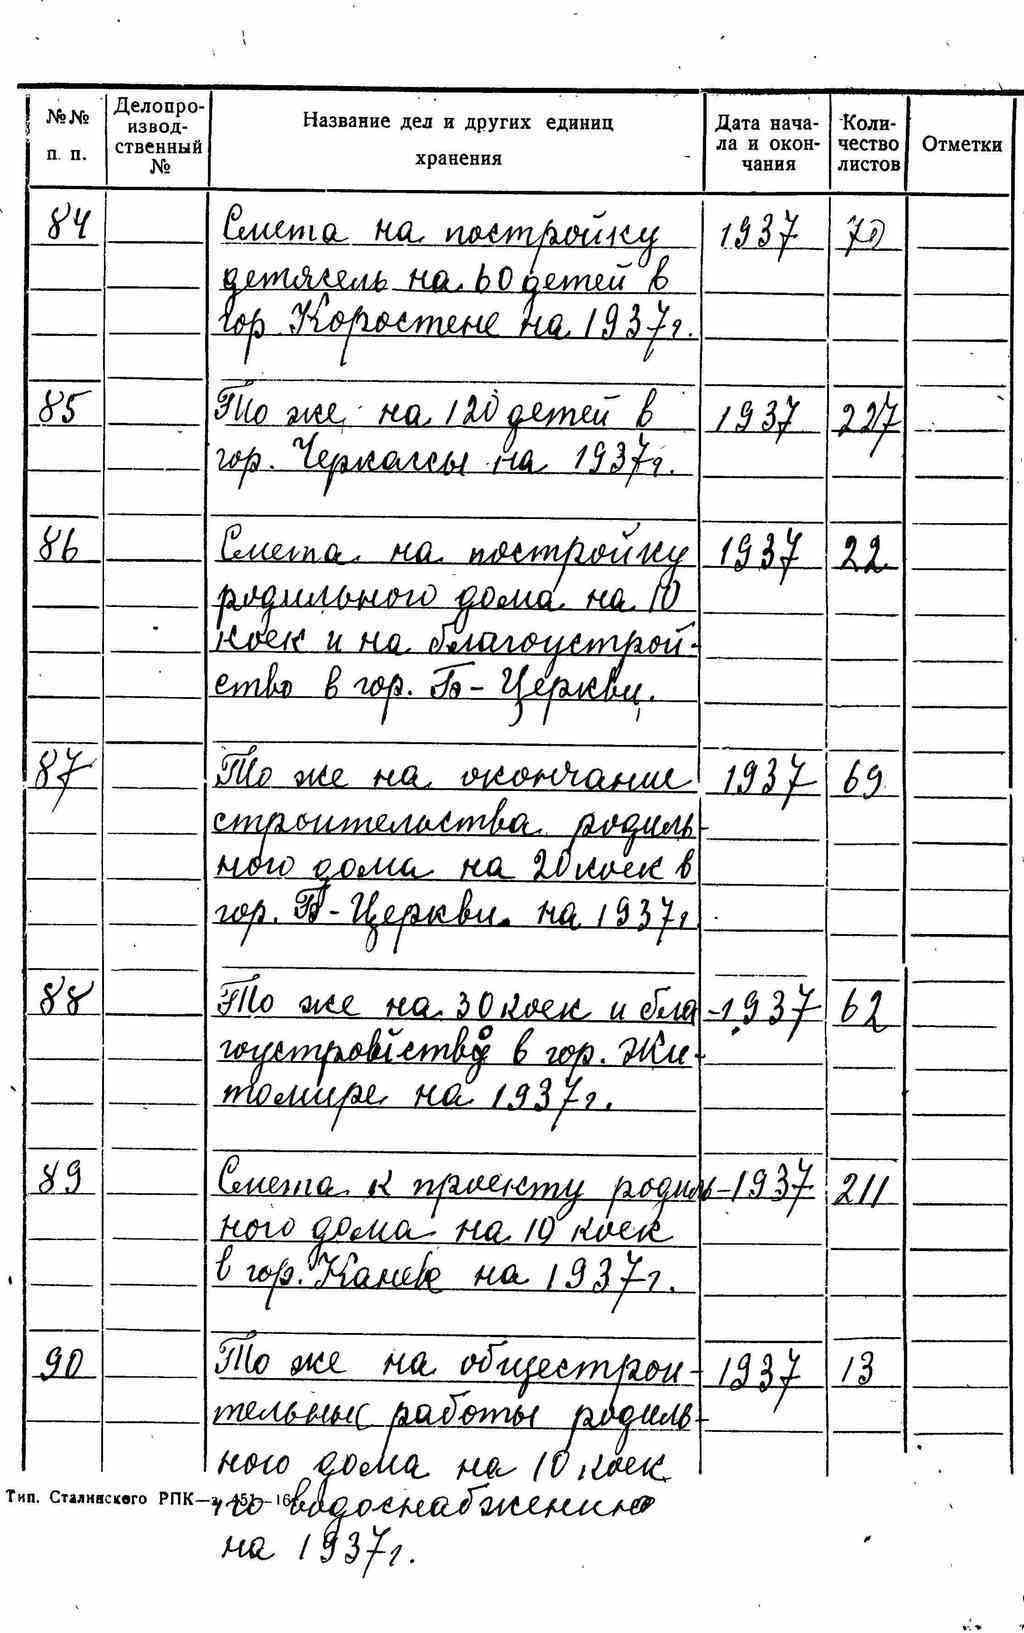 №№ п. п.
Делопро-
извод-
ственный
№
Название дел и других единиц
хранения
Дата нача-
ла и окон-
чания
Коли-
чество
листов
Отметки
84 Смета на постройку 1937 70
детясель на 60 детей в
гор. Коростене на 1937г.
85 То же на 120 детей в 1937 227
гор. Черкассы на 1937г.
86 Смета на постройку 1937 22
родильного дома на 10
коек и на благоустрой-
ство в гор. Б-Церкви.
87 То же на окончание 1937 69
строительства родиль-
ного дома на 20 коек в
гор. Б-Церкви на 1937г
88 То же на 30 коек и бла- 1937 62
гоустройство в гор. Жи-
томире на 1937г.
89 Смета к проекту родиль- 1937 211
ного дома на 10 коек
в гор. Канев на 1937г.
90 То же на общестрои- 1937 13
тельные работы родиль-
ного дома на 10 коек
по водоснабжению
на 1937г.
Тип. Сталинского РПК